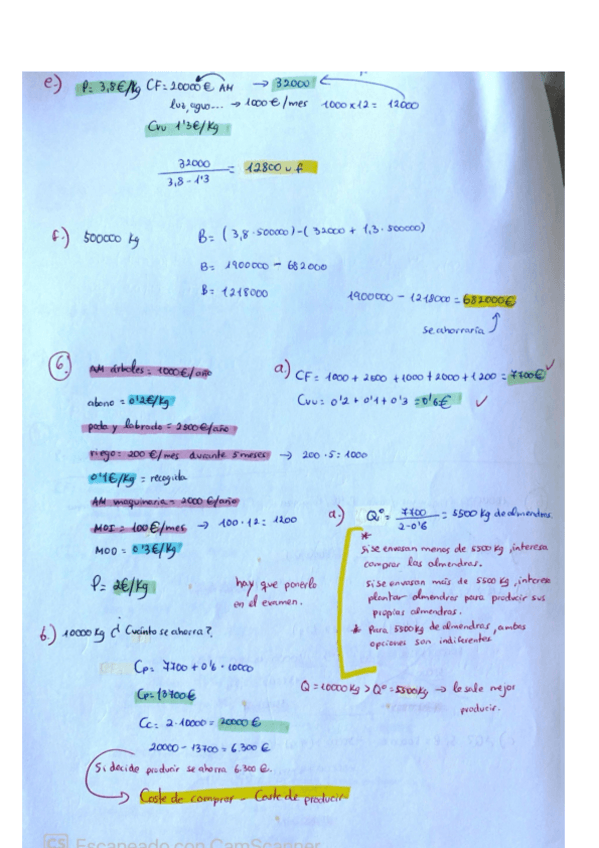 e.) P= 3,8€/kg CF= 20000€ AM → 32000
luz, agua... → 1000€/mes 1000x12 = 12000
Cvu 1'3€/kg
32000
3,8 - 1'3
= 12800 u f
f.) 500000 kg B= (3,8·500000)-(32000 + 1,3·500000)
B= 1900000 - 682000
B= 1218000
1900000 - 1218000 = 682000€
se ahorraría
6. AM árboles = 1000€/año
abono = 0'2€/kg
poda y labrado = 2500€/año
riego: 200€/mes durante 5 meses → 200·5 = 1000
0'1€/kg = recogida
AM maquinaria = 2000€/año
MOI = 100€/mes → 100·12 = 1200
MOD = 0'3€/kg
P= 2€/kg
hay que ponerlo
en el examen.
a) CF= 1000 + 2500 + 1000 + 2000 + 1200 = 7700€ ✓
Cvu = 0'2 + 0'1 + 0'3 = 0'6€ ✓
a.) Qº = 7700
2-0'6
= 5500 kg de almendras
*
Si se envasan menos de 5500 kg, interesa
comprar las almendras.
Si se envasan más de 5500 kg, interesa
plantar almendros para producir sus
propias almendras.
* Para 5500 kg de almendras, ambas
opciones son indiferentes
Q = 10000 kg > Qº = 5500kg → le sale mejor
producir.
b.) 10000 kg ¿Cuánto se ahorra?
Cp= 7700 + 0'6·10000
Cp= 13700€
Cc= 2·10000 = 20000€
20000 - 13700 = 6.300€
Si decide producir se ahorra 6.300€.
→ Coste de comprar - Coste de producir
CS Escaneado con CamScanner